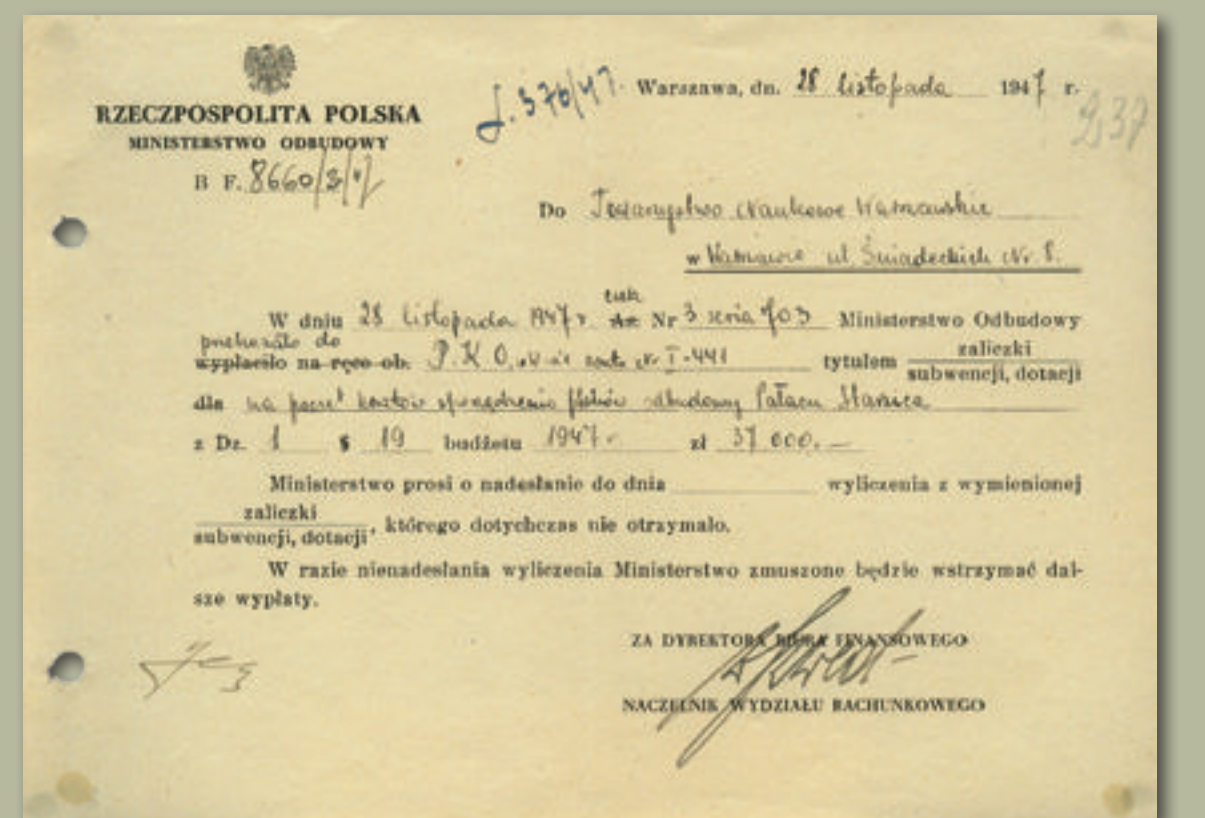 L. 376/47. Warszawa, dn. 28 listopada 1947 r.
237
RZECZPOSPOLITA POLSKA
MINISTERSTWO ODBUDOWY
B F. 8660/3/47
Do Towarzystwo Naukowe Warszawskie
w Warszawie ul. Śniadeckich Nr. 8.
czek
W dniu 28 listopada 1947 r. Nr 3 seria 703 Ministerstwo Odbudowy
przekazało do zaliczki
wypłaciło na ręce ob. P.K.O. Nr I-441 tytułem subwencji, dotacji
dla na poczet kosztów sporządzenia planów odbudowy Pałacu Staszica
z Dz. 1 § 19 budżetu 1947 r. zł 37 000.—
Ministerstwo prosi o nadesłanie do dnia wyliczenia z wymienionej
zaliczki
subwencji, dotacji, którego dotychczas nie otrzymało.
W razie nienadesłania wyliczenia Ministerstwo zmuszone będzie wstrzymać dal-
sze wypłaty.
ZA DYREKTORA BIURA FINANSOWEGO
NACZELNIK WYDZIAŁU RACHUNKOWEGO